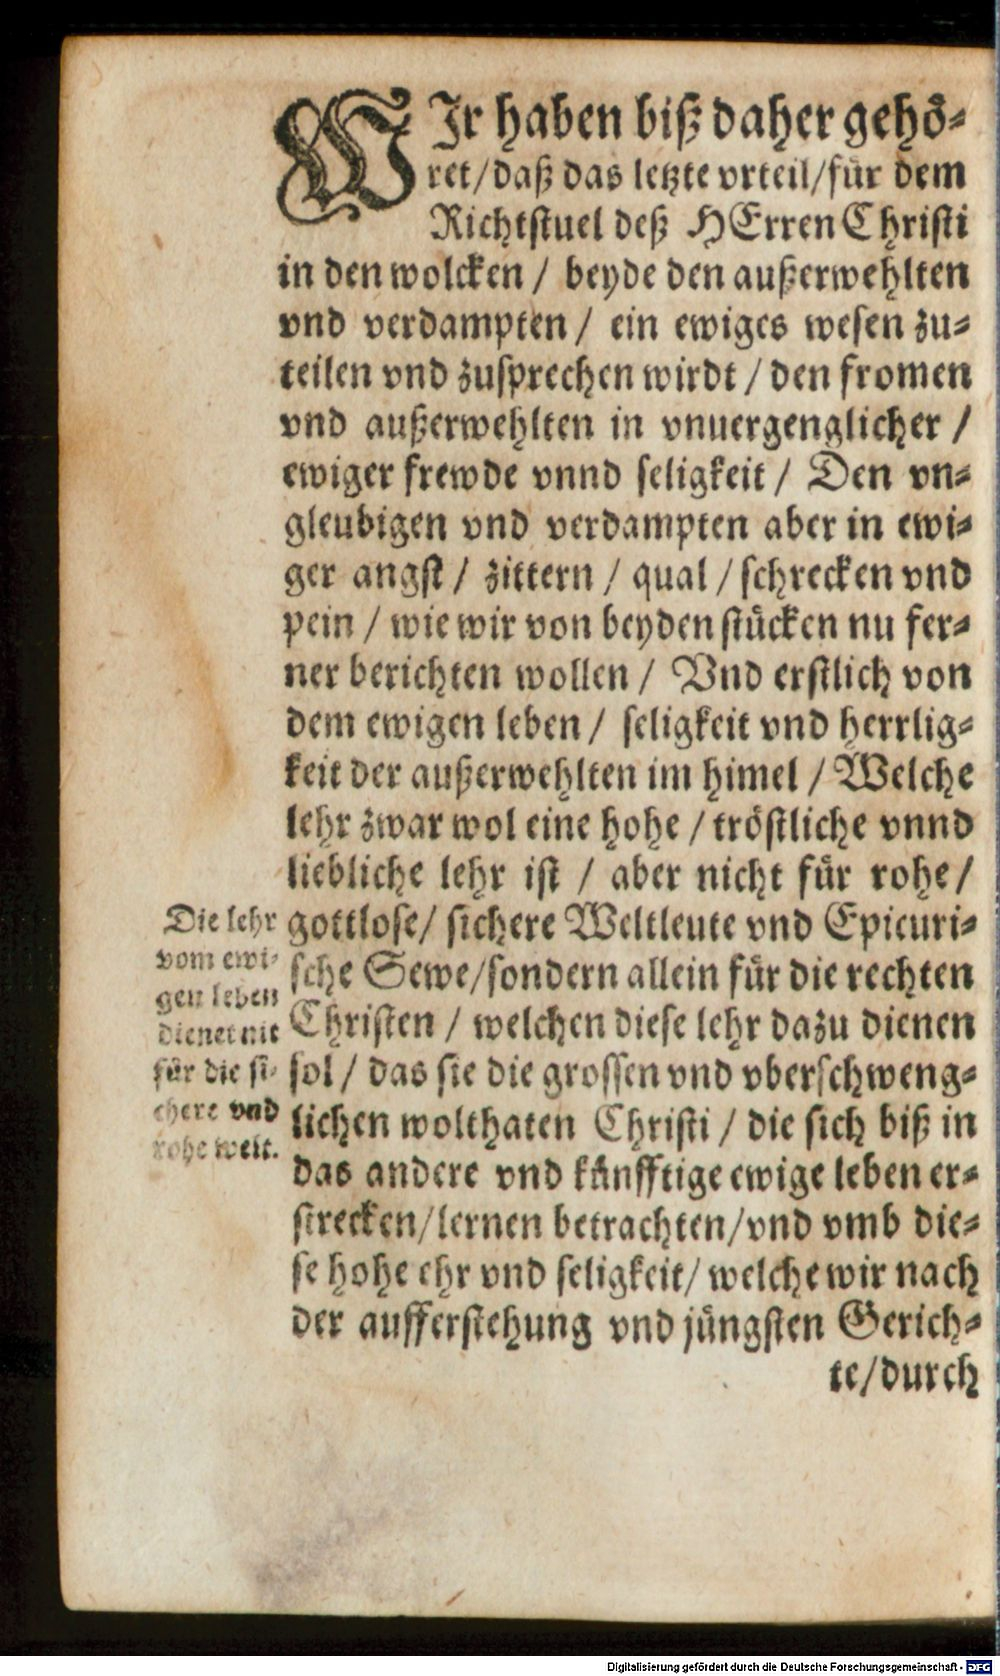 WIr haben biß daher gehö-
ret/daß das letzte vrteil/für dem
Richtstuel deß HErren Christi
in den wolcken / beyde den außerwehlten
vnd verdampten / ein ewiges wesen zu-
teilen vnd zusprechen wirdt / den fromen
vnd außerwehlten in vnuergenglicher /
ewiger frewde vnnd seligkeit / Den vn-
gleubigen vnd verdampten aber in ewi-
ger angst / zittern / qual / schrecken vnd
pein / wie wir von beyden stücken nu fer-
ner berichten wollen / Vnd erstlich von
dem ewigen leben / seligkeit vnd herrlig-
keit der außerwehlten im himel / Welche
lehr zwar wol eine hohe / tröstliche vnnd
liebliche lehr ist / aber nicht für rohe /
gottlose/ sichere Weltleute vnd Epicuri-
sche Sewe/sondern allein für die rechten
Christen / welchen diese lehr dazu dienen
sol / das sie die grossen vnd vberschweng-
lichen wolthaten Christi / die sich biß in
das andere vnd künfftige ewige leben er-
strecken/lernen betrachten/vnd vmb die-
se hohe ehr vnd seligkeit/ welche wir nach
der aufferstehung vnd jüngsten Gerich-
te/durch
Die lehr
vom ewi-
gen leben
dienet nit
für die si-
chere vnd
rohe welt.
Digitalisierung gefördert durch die Deutsche Forschungsgemeinschaft - DFG